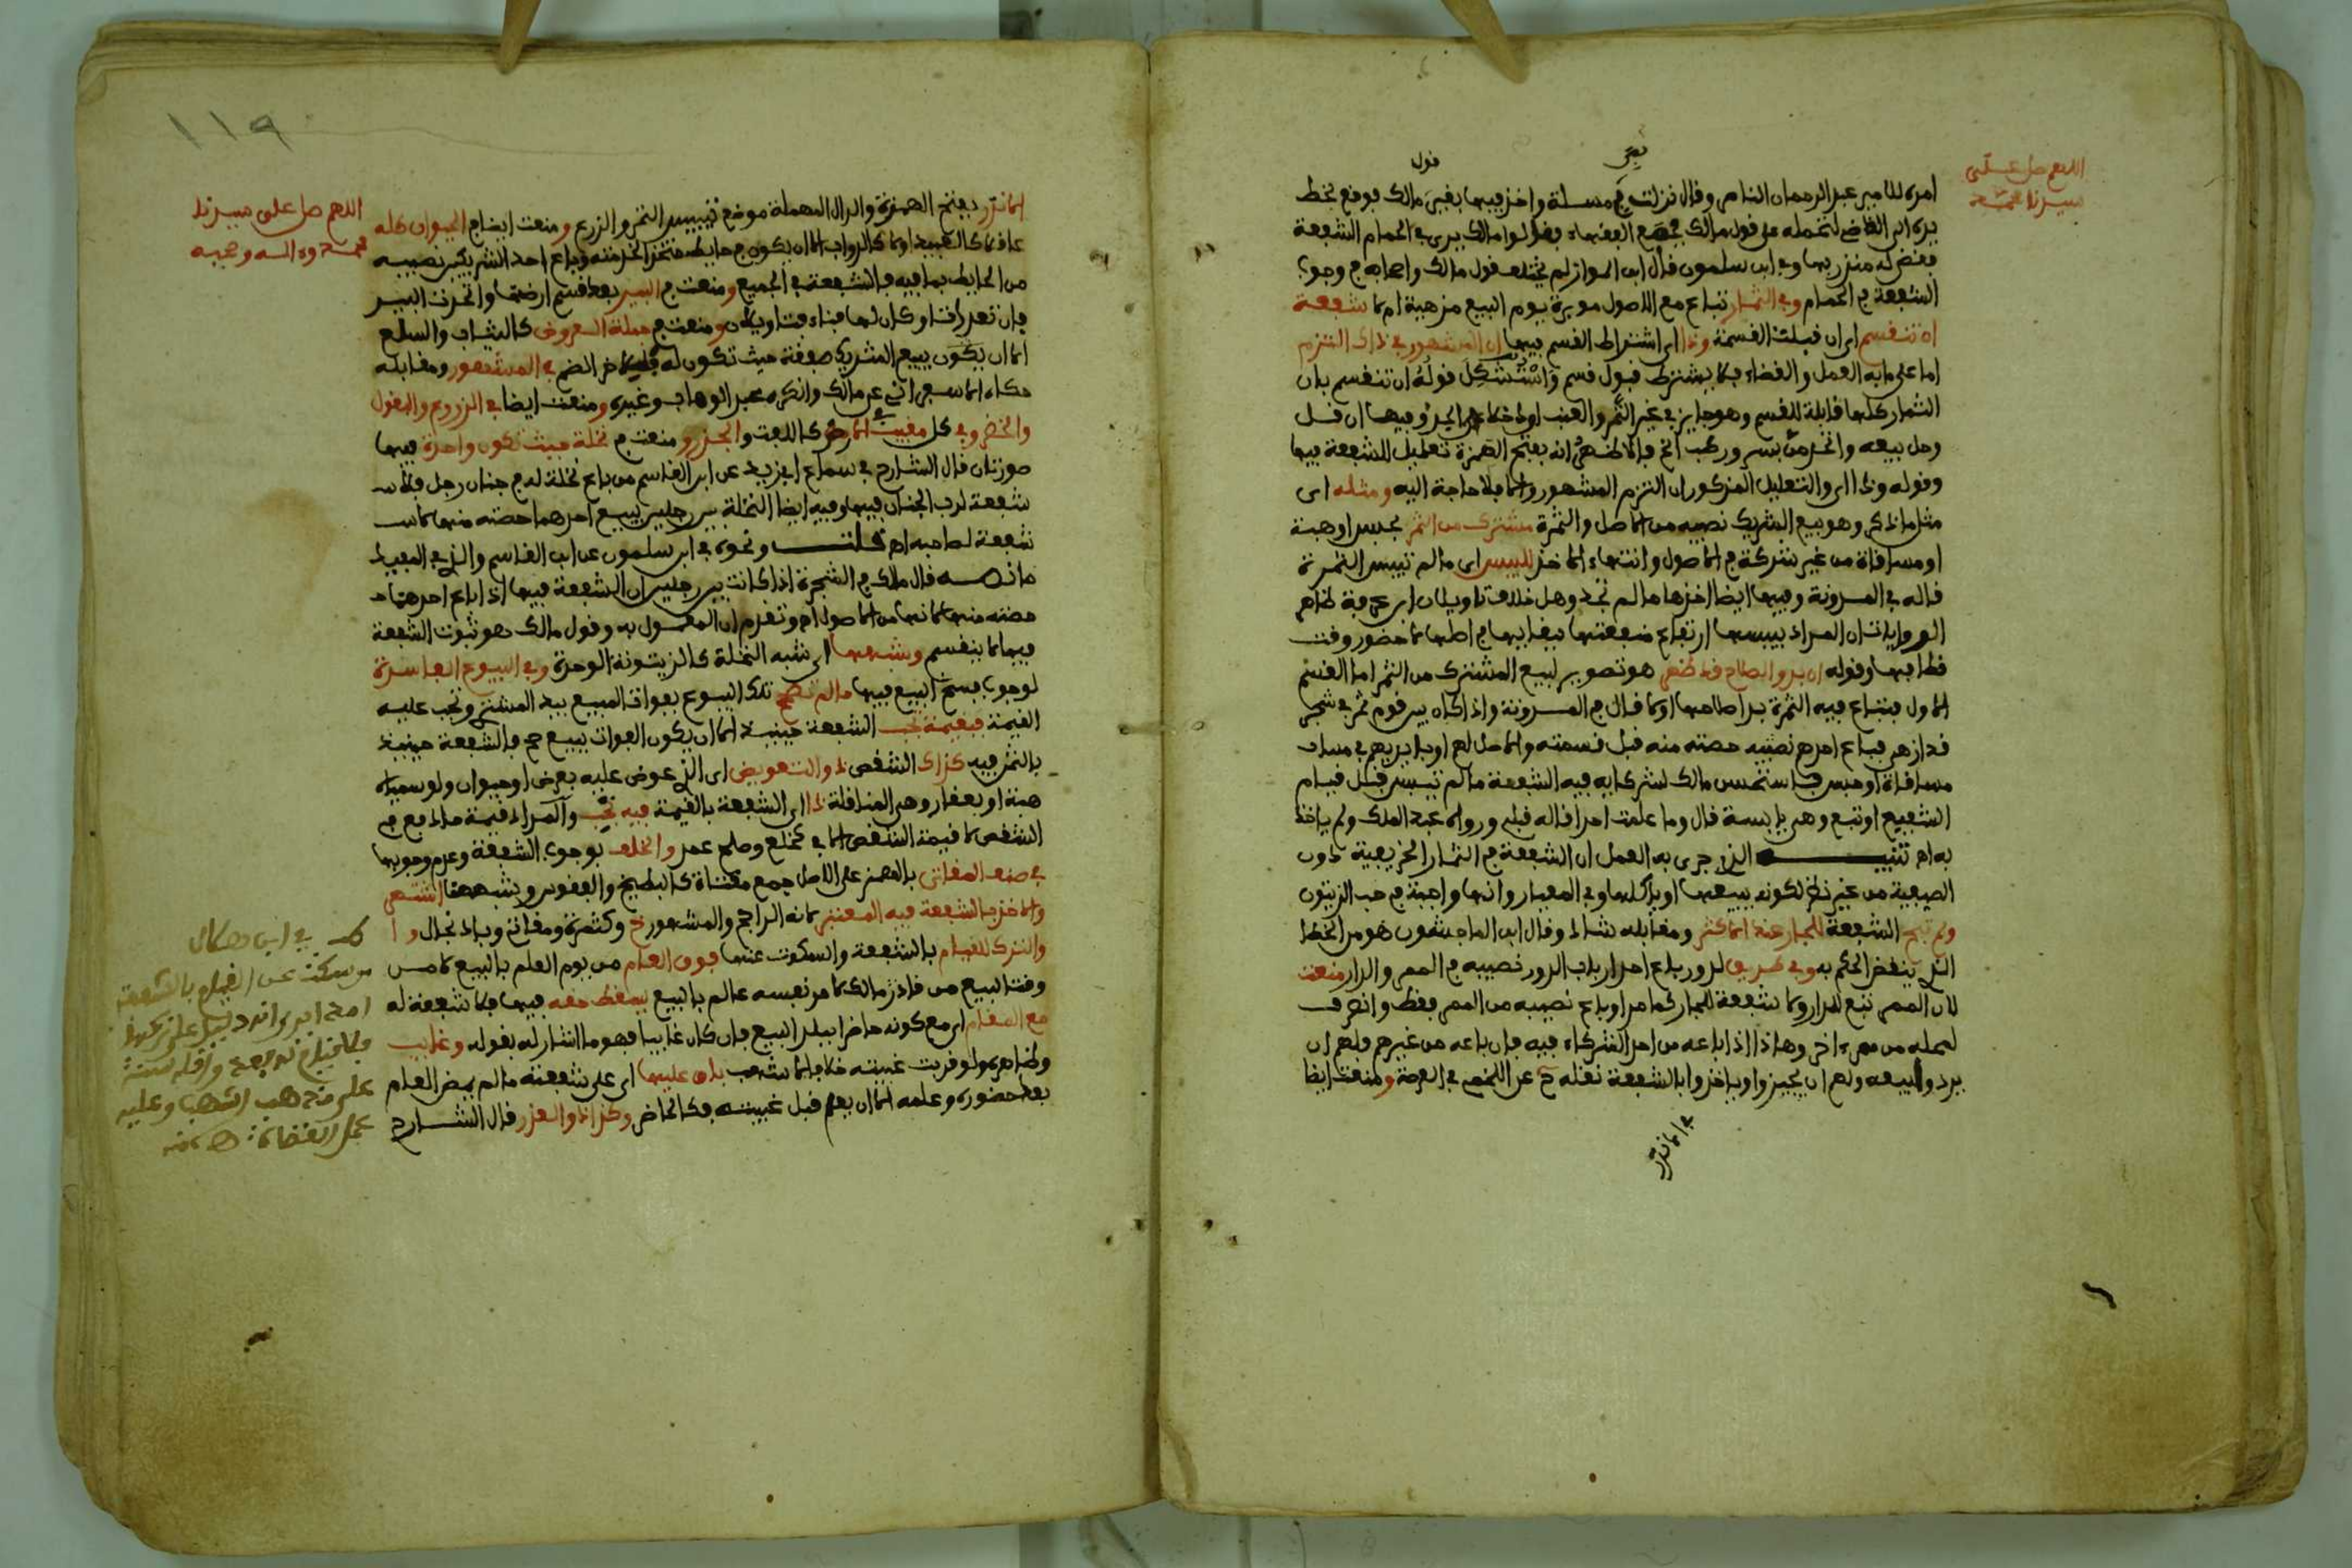 اللهم صل على
سيدنا محمد
قول
بغير
امره للامير عبد الرحمان الناصر وقال نزلت بي مسئلة واخذ فيها بغير مالك فوقع بخط
يده الى القاضي لتحمله على قول مالك فجمع الفقهاء فقالوا مالك يرى في الحمام الشفعة
فقضى له منذر بها وفي ابن سلمون قال ابن المواز لم يختلف قول مالك واصحابه في وجوب
الشفعة في الحمام وفي الثمار تباع مع الاصول موبرة يوم البيع مزهية ام لا شفعة
ان تنقسم اى ان قبلت القسمة وذا اى اشتراط القسم فيها ان المشهور في ذاك التزم
اما على ما به العمل والقضاء فلا يشترط قبول قسم واستشكل قوله ان تنقسم بان
الثمار كلها قابلة للقسم وهو جايز في غير التمر والعنب
وحل بيعه واتحد من بسر ورطب الخ فالاظهر انه بفتح الهمزة تعليل للشفعة فيها
وقوله وذا اى والتعليل المذكور ان التزم المشهور والا فلا حاجة اليه ومثله اى
مثل ما ذكر وهو بيع الشريك نصيبه من الاصل والثمرة مشترك من الثمر بحبس او هبة
او مساقاة من غير شركة في الاصول وانتهاء الاخذ لليبس اى ما لم تيبس الثمرة
قاله في المدونة وفيها ايضا اخذها ما لم تجذ وهل خلاف تاويلان ابن عرفة ظاهر
الروايات ان المراد بيبسها ارتفاع منفعتها ببقايها في اصلها لا حضور وقت
قطافها وقوله ان بدو الصلاح قد ظهر هو تصوير لبيع المشترك من الثمر اما القسم
الاول فتباع فيه الثمرة بدا صلاحها او لا قال في المدونة واذا كان بين قوم ثمر في شجر
قد ازهى فباع احدهم نصيبه حصته منه قبل قسمته والاصل لهم او بايديهم في
مساقاة او حبس فاستحسن مالك لشركايه فيه الشفعة ما لم تيبس قبل قيام
الشفيع او تبع وهي يابسة قال وما علمت احدا قاله قبلي ورواه عبد الملك ولم ياخذ
به اهـ تنبيه الذي جرى به العمل ان الشفعة في الثمار الخريفية دون
الصيفية من غير نظر لكونه يبيعها او ياكلها وفي المعيار وانها واجبة في حب الزيتون
ولم تبح الشفعة للجار عند الاكثر ومقابله شاذ وقال ابن الماجشون هو من الخطا
الذي ينقض الحكم به وفي طريق لدور باع احد ارباب الدور نصيبه في الممر والدار منعت
لان الممر تبع للدار ولا شفعة للجار كما مر او باع نصيبه من الممر فقط وانصرف
لمحله من ممر اخر وهاذا اذا باعه من احد الشركاء فيه فان باعه من غيرهم فلهم ان
يردوا بيعه ولهم ان يجيزوا وياخذوا بالشفعة نقله ح عن اللخمي في العرصة ومنعت ايضا
في الاندر
١١٩
اللهم صل على سيدنا
محمد وءاله وصحبه
الاندر بفتح الهمزة والدال المهملة موضع تيبيس الثمر والزرع ومنعت ايضا في الحيوان كله
عاقلا كالعبيد او لا كالدواب الا ان يكون في حايط متخذ الخدمته وباع احد الشريكين نصيبه
من الحايط بما فيه فالشفعة في الجميع ومنعت في البير بعد قسم ارضها واتحدت البير
فان تعددت او كان لها فناء فتاويلان ومنعت في جملة العروض كالثياب والسلع
الا ان يكون بيع الشريك صفقة حيث تكون له في المشهور ومقابله
حكاه الاسبهاني عن مالك وانكره عبد الوهاب وغيره ومنعت ايضا في الزروع والبقول
والخضر وفي كل مغيب في الارض كاللفت والجزر ومنعت في نخلة حيث تكون واحدة فيها
صورتان قال الشارح في سماع ابي زيد عن ابن القاسم من باع نخلة له في جنان رجل فلا
شفعة لرب الجنان فيها وفيه ايضا النخلة بين رجلين يبيع احدهما حصته منها لا
شفعة لصاحبه اهـ قلت ونحوه في ابن سلمون عن ابن القاسم والذي في المفيد
ما نصه قال مالك في الشجرة اذا كانت بين رجلين ان الشفعة فيها اذا باع احدهما
حصته منها لانها من الاصول اهـ وتقدم ان المعمول به وقول مالك هو ثبوت الشفعة
فيما لا ينقسم وشبهها اى شبه النخلة كالزيتونة الوحدة وفي البيوع الفاسدة
لوجوب فسخ البيع فيها ما لم تصح تلك البيوع بفوات المبيع بيد المشتري وتجب عليه
القيمة فبقيمة تجب الشفعة حينيذ الا ان يكون الفوات ببيع صح فالشفعة حينيذ
بالثمن فيه كذاك الشقص ذو التعويض اى الذي عوض عليه بعرض او حيوان ولو
هبة او بعقار وهي المناقلة ذا اى الشفعة بالقيمة فيه تجب والمراد قيمة ما دفع في
الشقص لا قيمة الشقص الا في خلع وصلح عمد والخلف بوجوب الشفعة وعدم وجوبها
في صنف المقاثي بالهمز على الاصل جمع مقثاة كالبطيخ والفقوس وشبههما اشتهر
والاخذ بالشفعة فيه المعتبر لانه الراجح والمشهور خ وكثمرة ومقاثي وباذنجال
والترك للقيام بالشفعة والسكوت عنها فوق العام من يوم العلم بالبيع لا من
وقت البيع من حاذر مالك لامر نفسه عالم بالبيع يسقط حقه فيها فلا شفعة له
مع المقام اى مع كونه حاضرا ببلد البيع فان كان غايبا فهو ما اشار له بقوله وغايب
وظاهره ولو قربت غيبته خلافا لاشهب باق عليها اى على شفعته ما لم يمض العام
بعد حضوره وعلمه الا ان يعلم قبل غيبته فكالحاضر وكذا ذو العذر قال الشارح
من سكت عن القيام بالشفعة
على مذهب اشهب وعليه
عمل القضاة